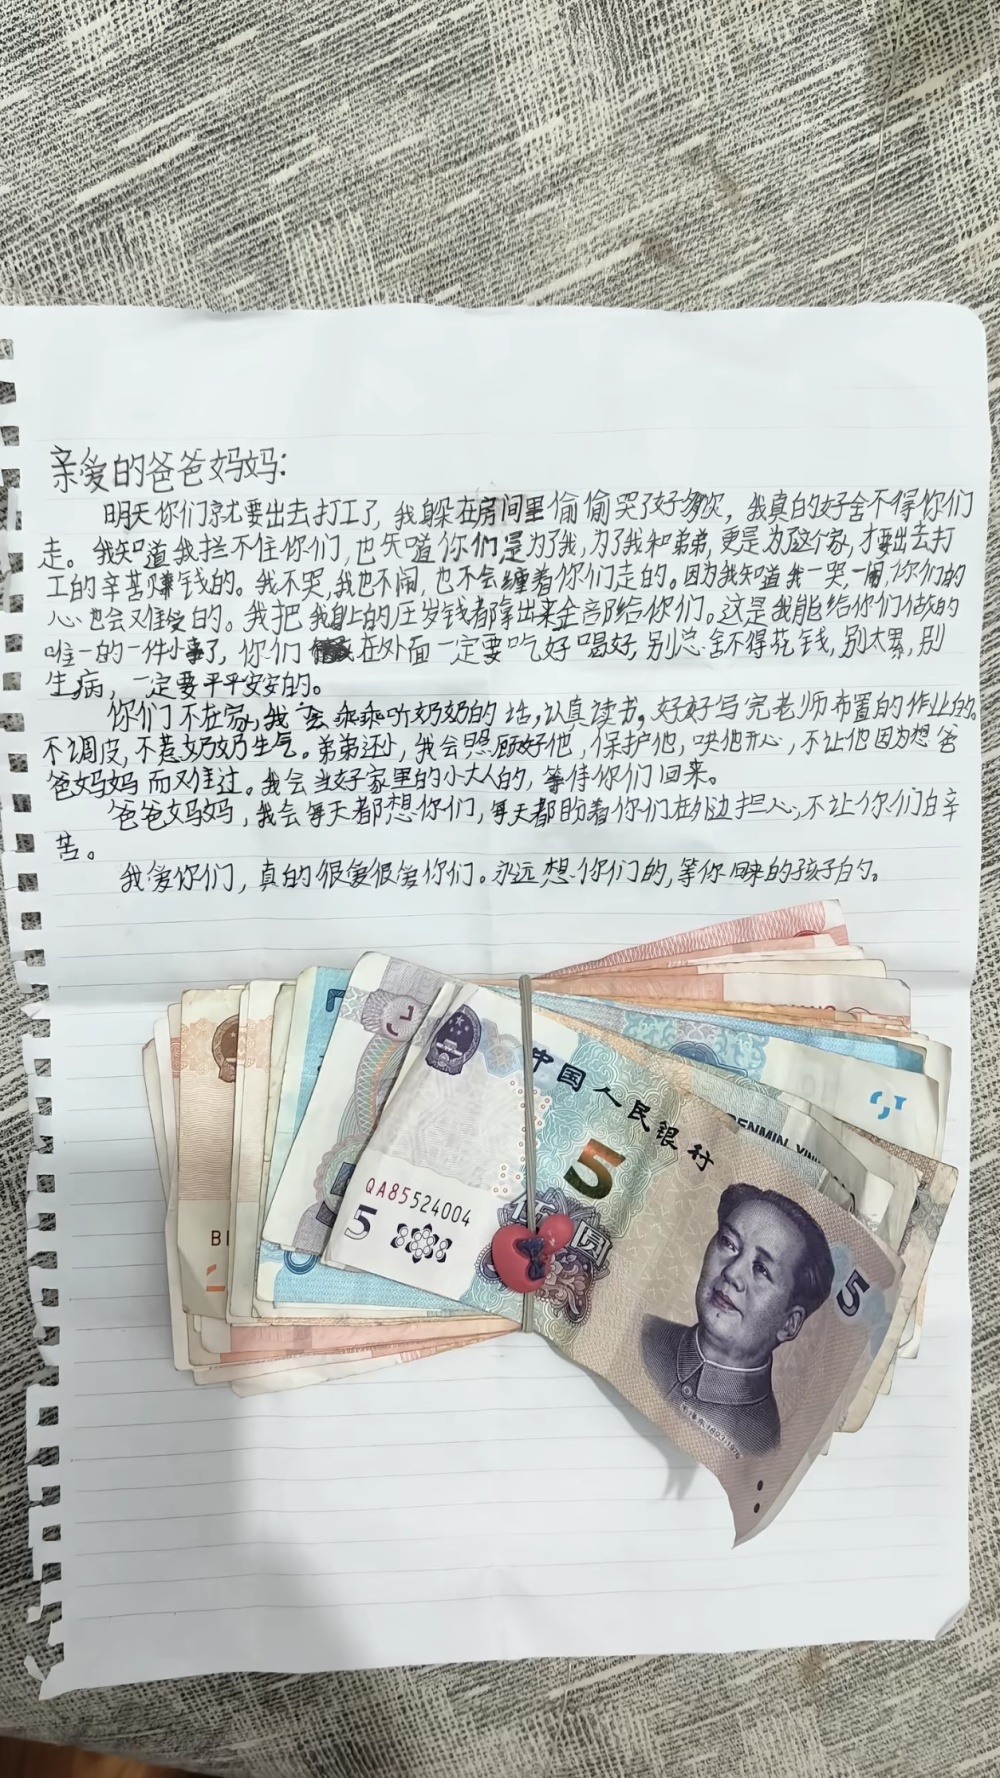 亲爱的爸爸妈妈:
明天你们就要出去打工了,我躲在房间里偷偷哭了好多次,我真的好舍不得你们
走。我知道我拦不住你们,也知道你们是为了我,为了我和弟弟,更是为了这个家,才要出去打
工的辛苦赚钱的。我不哭,我也不闹,也不会缠着你们走的。因为我知道我一哭,一闹,你们的
心也会又难受的。我把我身上的压岁钱都拿出来全部给你们。这是我能给你们做的
唯一的一件小事了,你们在外面一定要吃好喝好,别总舍不得花钱,别太累,别
生病,一定要平平安安的。
你们不在家,我会乖乖听奶奶的话,认真读书,好好写完老师布置的作业的。
不调皮,不惹奶奶生气。弟弟还小,我会照顾好他,保护他,哄他开心,不让他因为想爸
爸妈妈而难过。我会当好家里的小大人的,等待你们回来。
爸爸妈妈,我会每天都想你们,每天都盼着你们在外边担心,不让你们白辛
苦。
我爱你们,真的很爱很爱你们。永远想你们的,等你回来的孩子白的。
中国人民银行
5
QA85524004
5
伍圆
5
RENMIN YINH
毛泽东 1893-1976